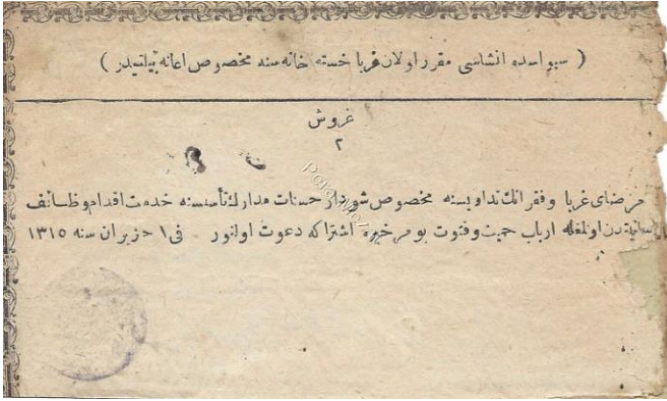 ( سیواسده انشاسی مقرر اولان غربا خسته خانه سنه مخصوص اعانه بیلتیدر )
غروش
٢
مرضای غربا و فقرانك تداویسنه مخصوص شو دار حسنات مدارك تأسیسنه خدمت اقدام وظائف
اولمغله ارباب حمیت وفتوت بو امر خیره اشتراكه دعوت اولنور فی ١ حزیران سنه ١٣١٥